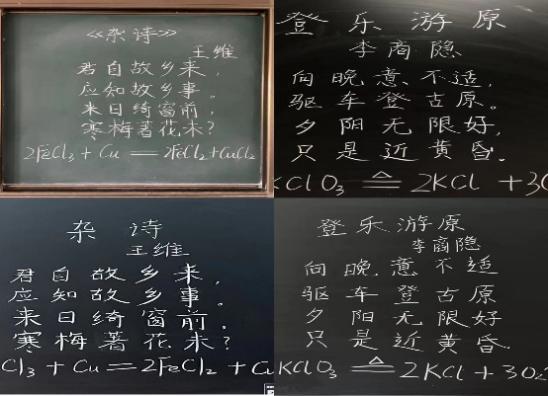 《杂诗》
王维
君自故乡来,
应知故乡事。
来日绮窗前,
寒梅著花未?
2FeCl₃ + Cu = 2FeCl₂ + CuCl₂
登乐游原
李商隐
向晚意不适,
驱车登古原。
夕阳无限好,
只是近黄昏.
KClO₃ ≜ 2KCl + 3O
杂诗
王维
君自故乡来,
应知故乡事.
来日绮窗前.
寒梅著花未?
Cl₃ + Cu = 2FeCl₂ + Cu
登乐游原
李商隐
向晚意不适
驱车登古原
夕阳无限好
只是近黄昏.
KClO₃ ≜ 2KCl + 3O₂